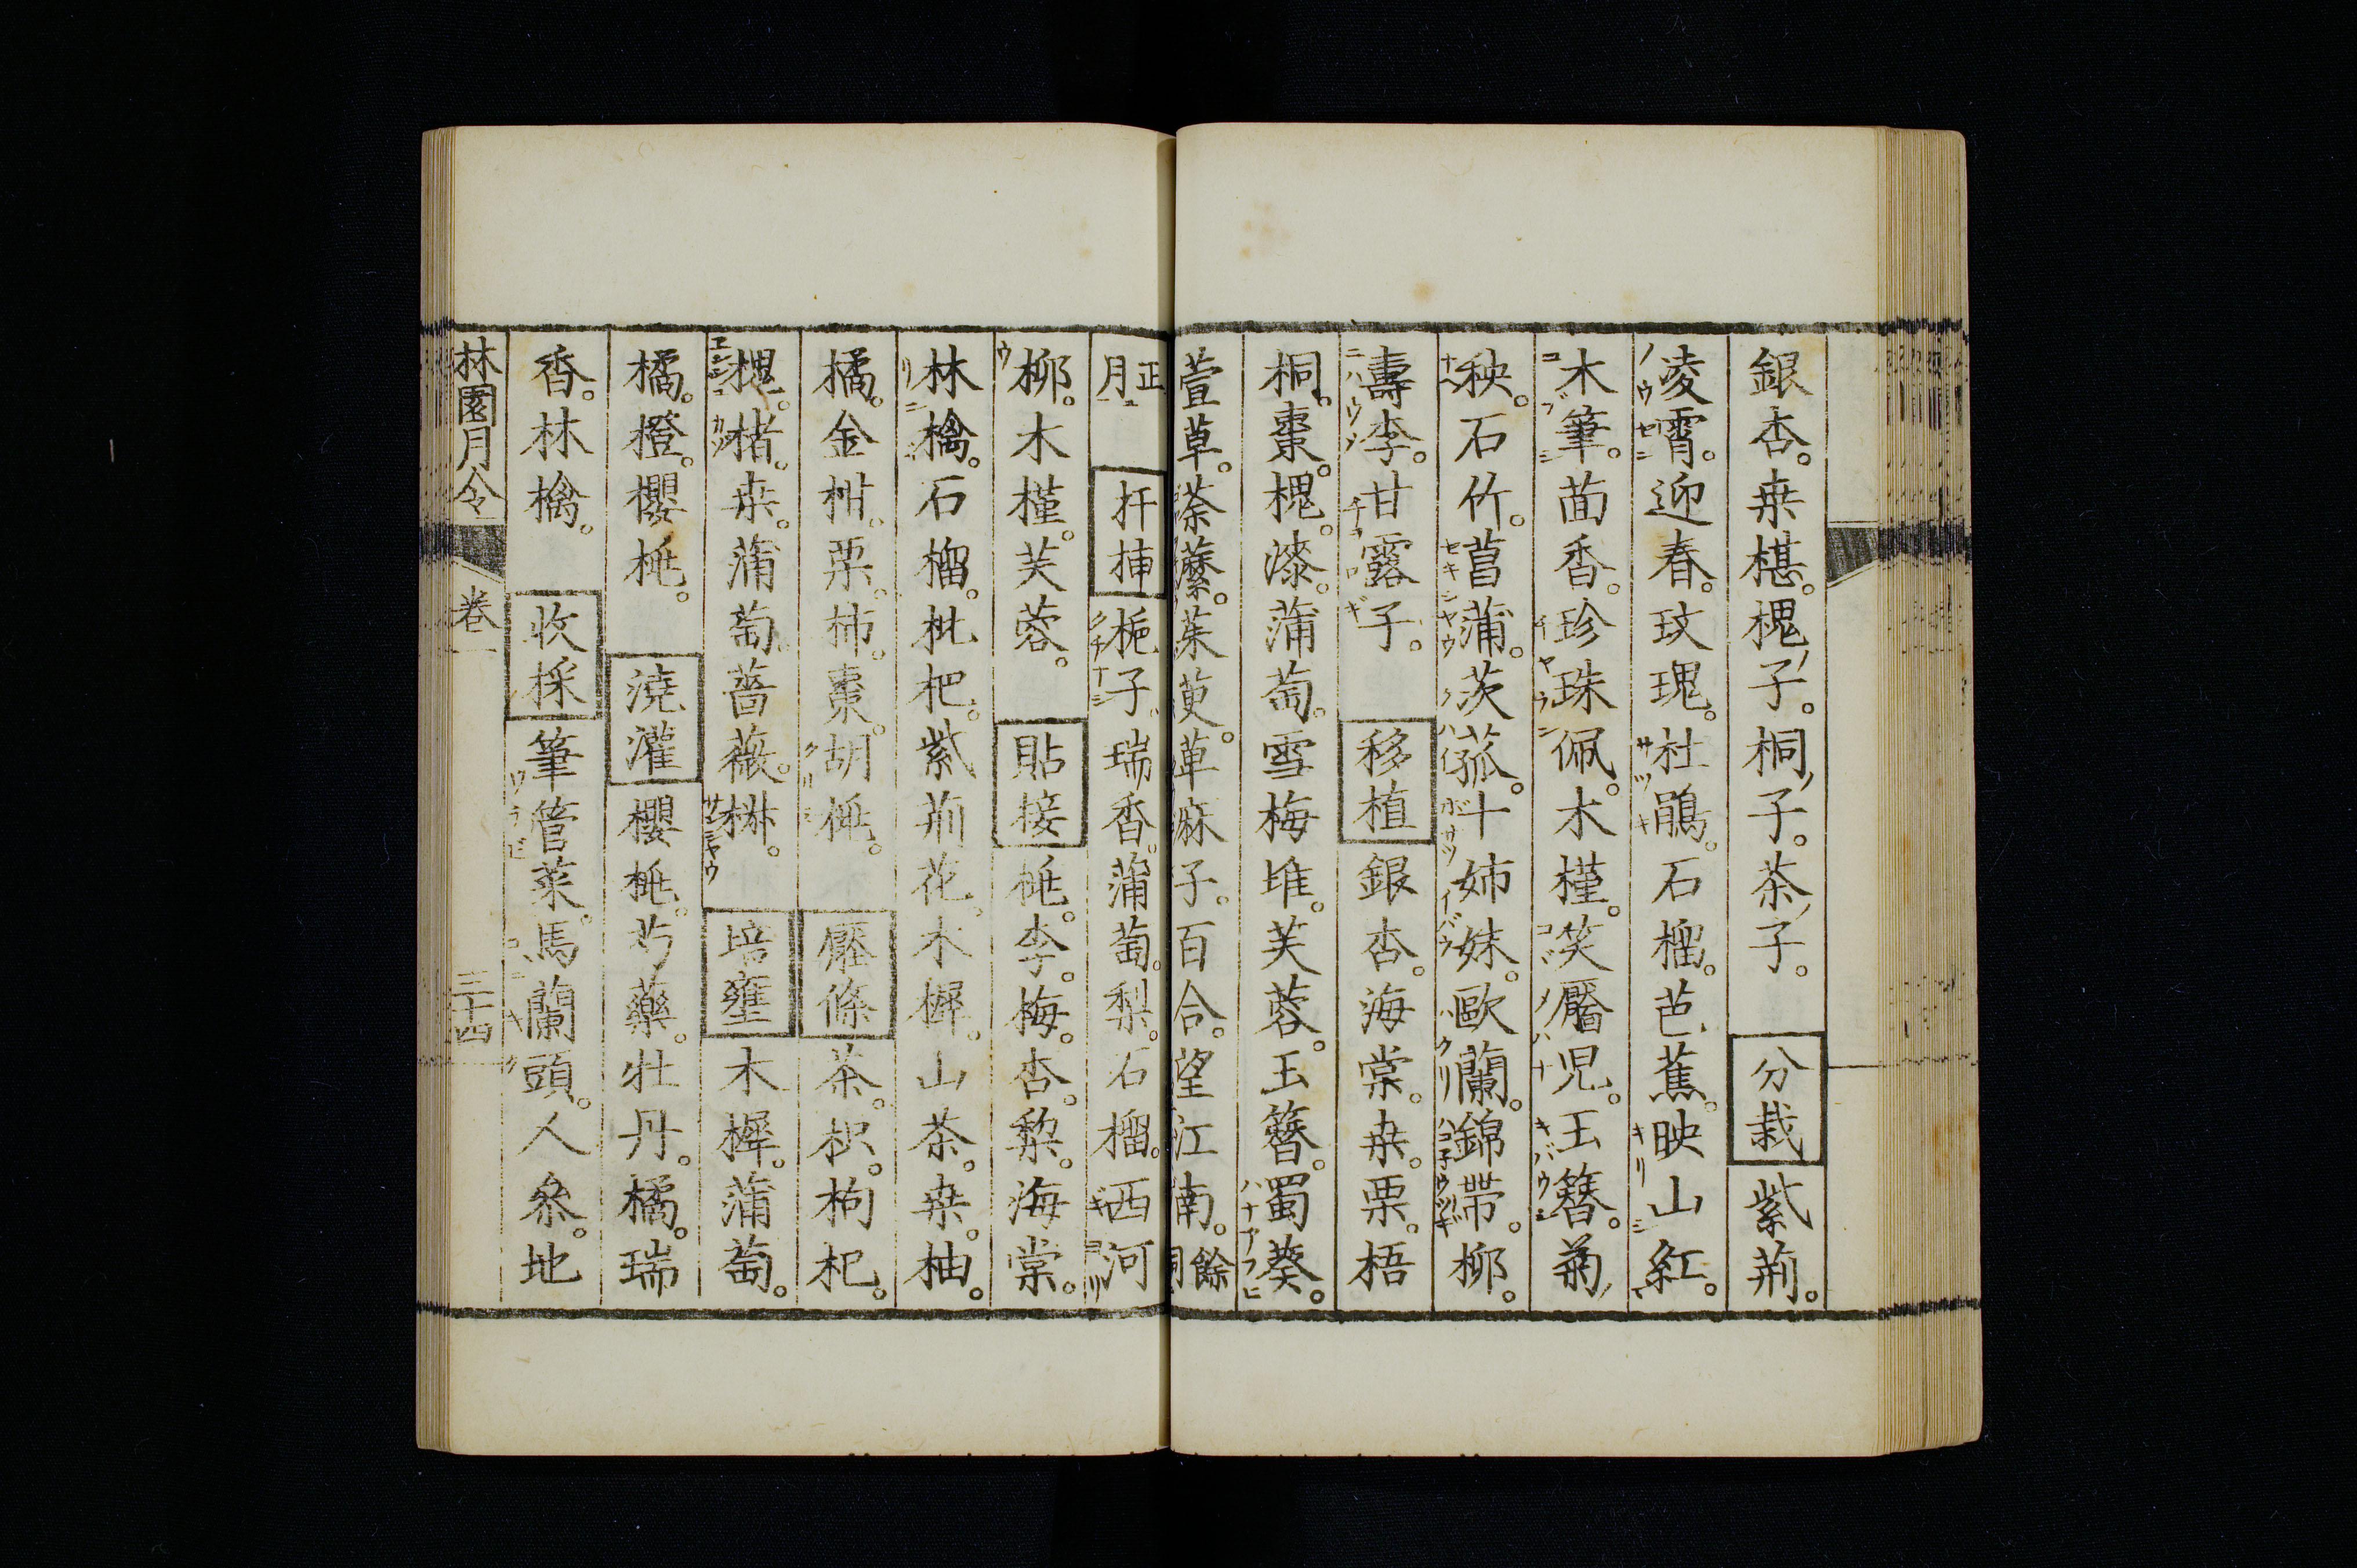 銀杏。桒椹。槐ノ子。桐ノ子。茶ノ子。 分栽 紫荊。
凌霄。迎春。玫瑰。杜鵑。石榴。芭蕉。映山紅。
木筆。茴香。珍珠佩。木槿。笑靨児。玉簪。菊ノ
秧。石竹。菖蒲。茨菰。十姉妹。歐蘭。錦帶。柳。
壽李。甘露子。 移植 銀杏。海棠。桒。栗。梧
桐。棗。槐。漆。蒲萄。雪梅堆。芙蓉。玉簪。蜀葵。
萱草。荼蘼。茱萸。萆麻子。百合。望江南。餘同
正月 扦挿 梔子。瑞香。蒲萄。梨。石榴。西河
柳。木槿。芙蓉。 貼接 桃。李。梅。杏。棃。海棠。
林檎。石榴。枇杷。紫荊花。木樨。山茶。桒。柚。
橘。金柑。栗。柿。棗。胡桃。 壓條 茶。枳。枸杞。
槐。楮。桒。蒲萄。薔薇。椒。 培壅 木樨。蒲萄。
橘。橙。櫻桃。 澆灌 櫻桃。芍藥。牡丹。橘。瑞
香。林檎。 收採 筆管菜。馬蘭頭。人参。地
林園月令 卷一 三十四